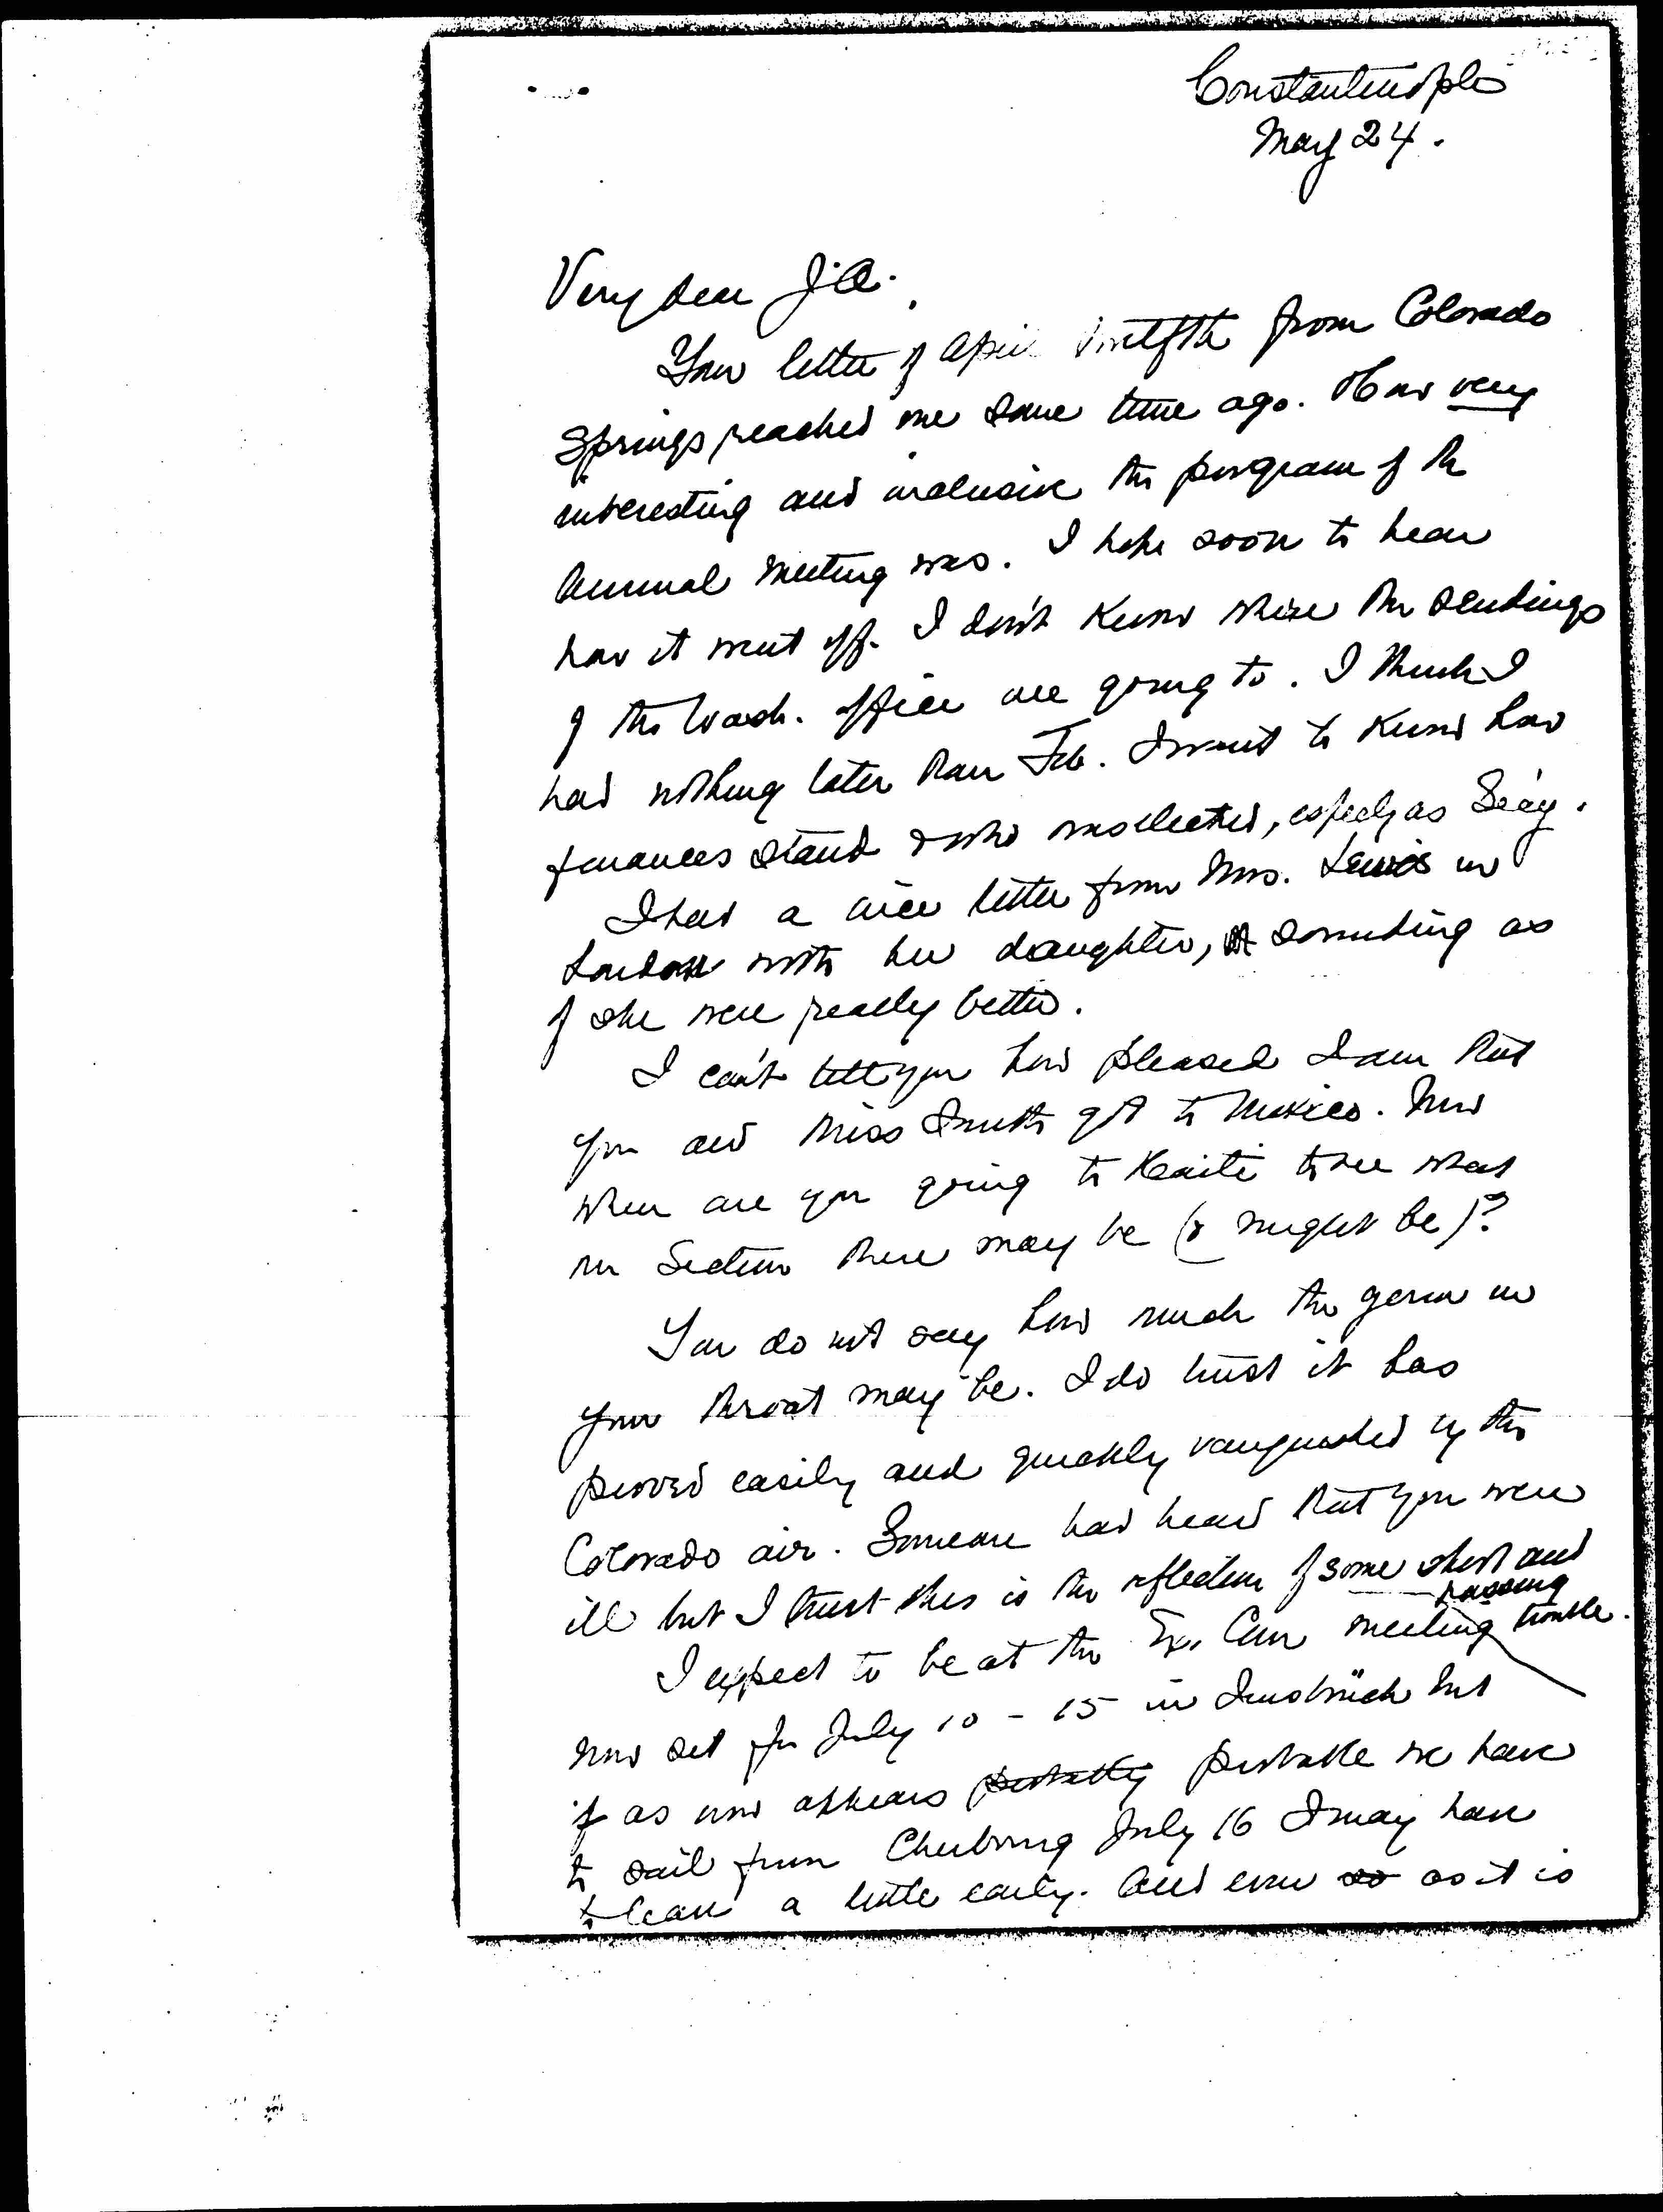 Constantinople
May 24.
Very dear J.A.
Your letter of April twelfth from Colorado
Springs reached me some time ago. How very
interesting and inclusive the program of the
Annual Meeting was. I hope soon to hear
how it went off. I don't know where the sendings
of the Wash. office are going to. I think I
had nothing later than Feb. I want to know how
finances stand & who was elected, especly as Sec'y.
I had a nice letter from Mrs. Lewis in
London with her daughter, sounding as
if she were really better.
I can't tell you how pleased I am that
you and Miss Smith got to Mexico. Now
when are you going to Haiti to see what
our Section there may be (or might be)?
You do not say how much the germ in
your throat may be. I do trust it has
proved easily and quickly vanquished by the
Colorado air. Someone had heard that you were
ill but I trust this is the reflection of some short and
passing trouble.
I expect to be at the Ex. Com meeting
now set for July 10 - 15 in Innsbrück but
if as now appears probably probable we have
to sail from Cherbourg July 16 I may have
to leave a little early. And even so as it is